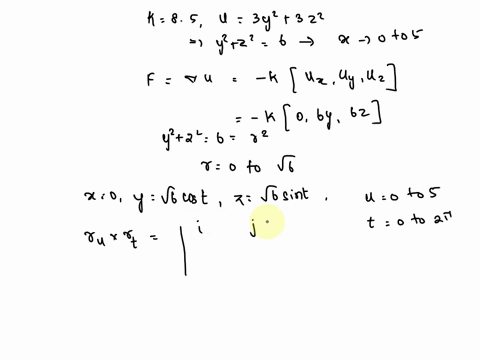 K = 8.5, u = 3y² + 3z²
⇒ y² + z² = 6 → x → 0 to 5
F = ▽ u = -K [ Ux, Uy, Uz ]
= -K [ 0, 6y, 6z ]
y² + z² = 6 = r²
r = 0 to √6
x = 0, y = √6 cost, z = √6 sint, u = 0 to 5
t = 0 to 2π
r_u × r_t = | i j